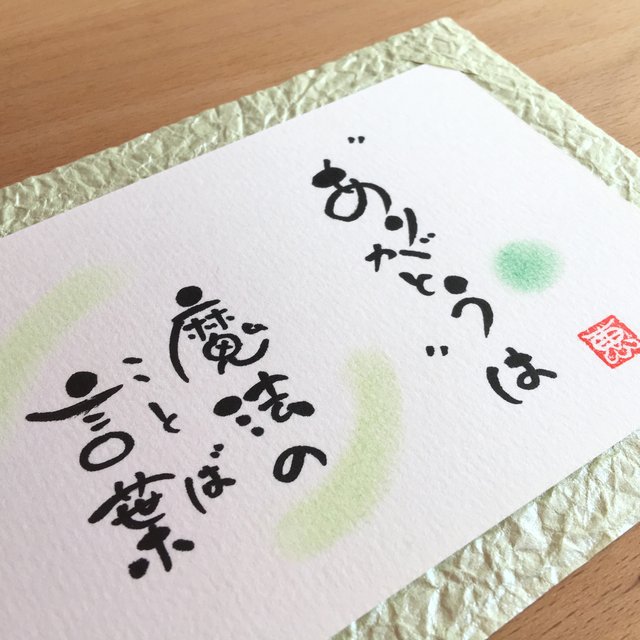 "ありがとう"は
魔法の
ことば
言葉